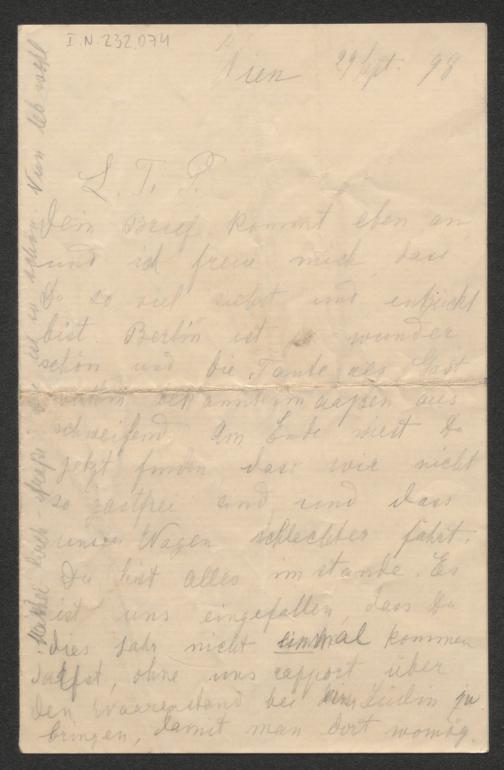 I.N. 232.074
Wien 29 Sept. 98
L. T. P.
Dein Brief kommt eben an
und ich freue mich dass
Du so viel siehst und entzückt
bist. Berlin ist so wunder
schön und die Tante als Gast
bekanntermaaßen aus
schweifend. Am Ende wirst Du
jetzt finden dass wir nicht
so gastfrei sind und dass
unser Wagen schlechter fährt.
Du bist alles im stande. Es
ist uns eingefallen, dass Du
dies Jahr nicht einmal kommen
darfst, ohne uns rapport über
den Waarenstand bei zu
bringen, damit man dort womög
schön. Nun leb wohl